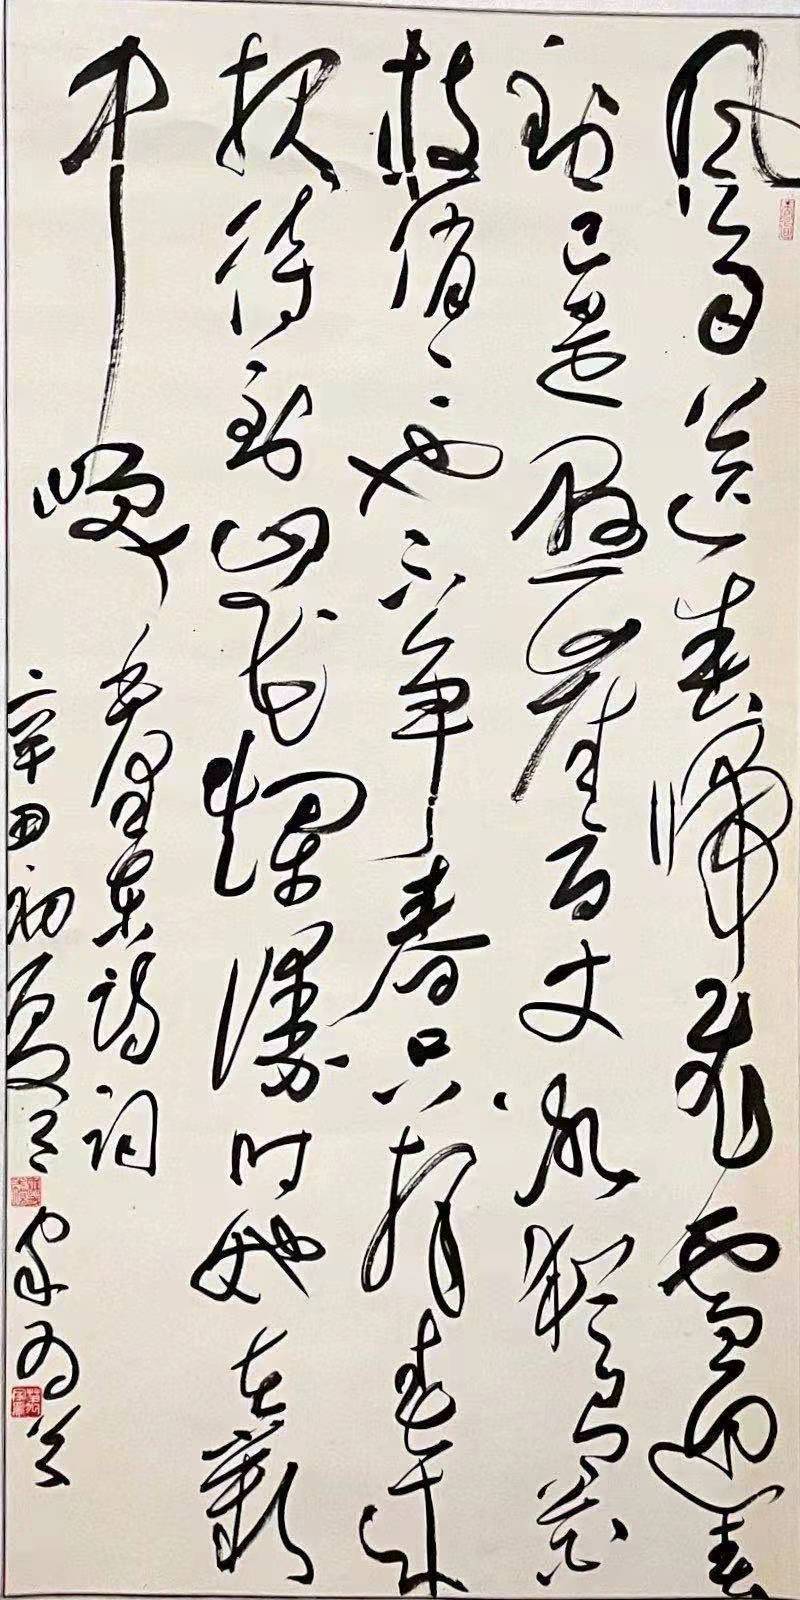 风雨送春归飛雪迎春
到已是悬崖百丈冰犹有花
枝俏〻也不争春只把春来
报待到山花烂漫时她在叢
中咲
毛泽东诗词
辛丑初夏